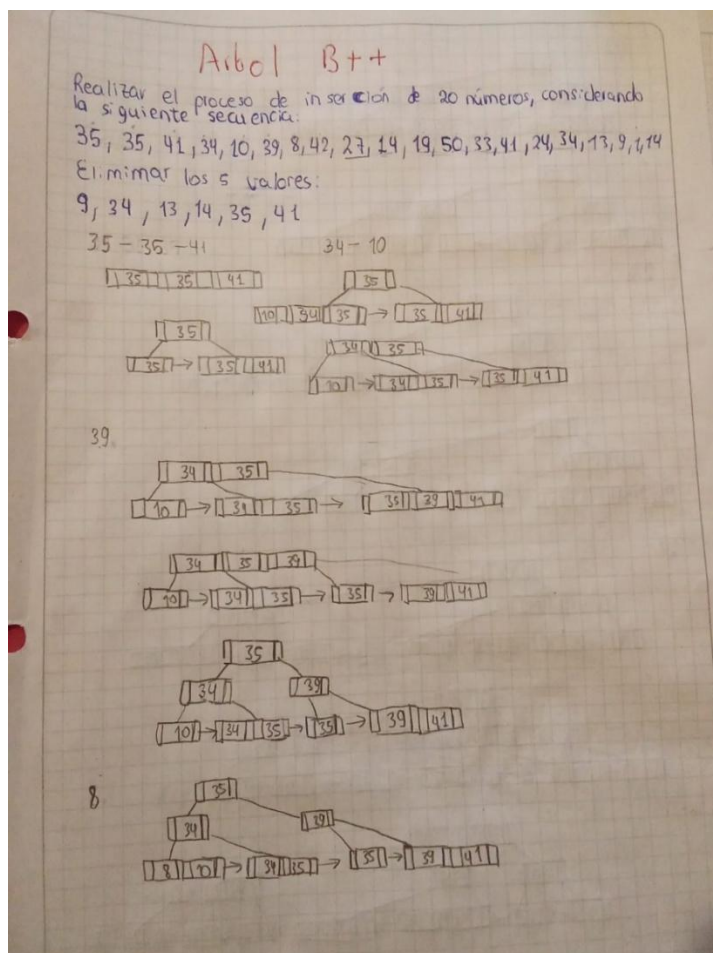 Arbol B++
Realizar el proceso de inserción de 20 números, considerando
la siguiente secuencia:
35, 35, 41, 34, 10, 39, 8, 42, 27, 14, 19, 50, 33, 41, 24, 34, 13, 9, 1, 14
Elimimar los 5 valores:
9, 34, 13, 14, 35, 41
35 - 35 - 41 34 - 10
35 35 41 35
10 34 35 → 35 41
35 34 35
35 → 35 41 10 → 34 35 → 35 41
39.
34 35
10 → 34 35 → 35 39 41
34 35 39
10 → 34 35 → 35 → 39 41
35
34 39
10 → 34 35 → 35 → 39 41
8 35
34 39
8 10 → 34 35 → 35 → 39 41